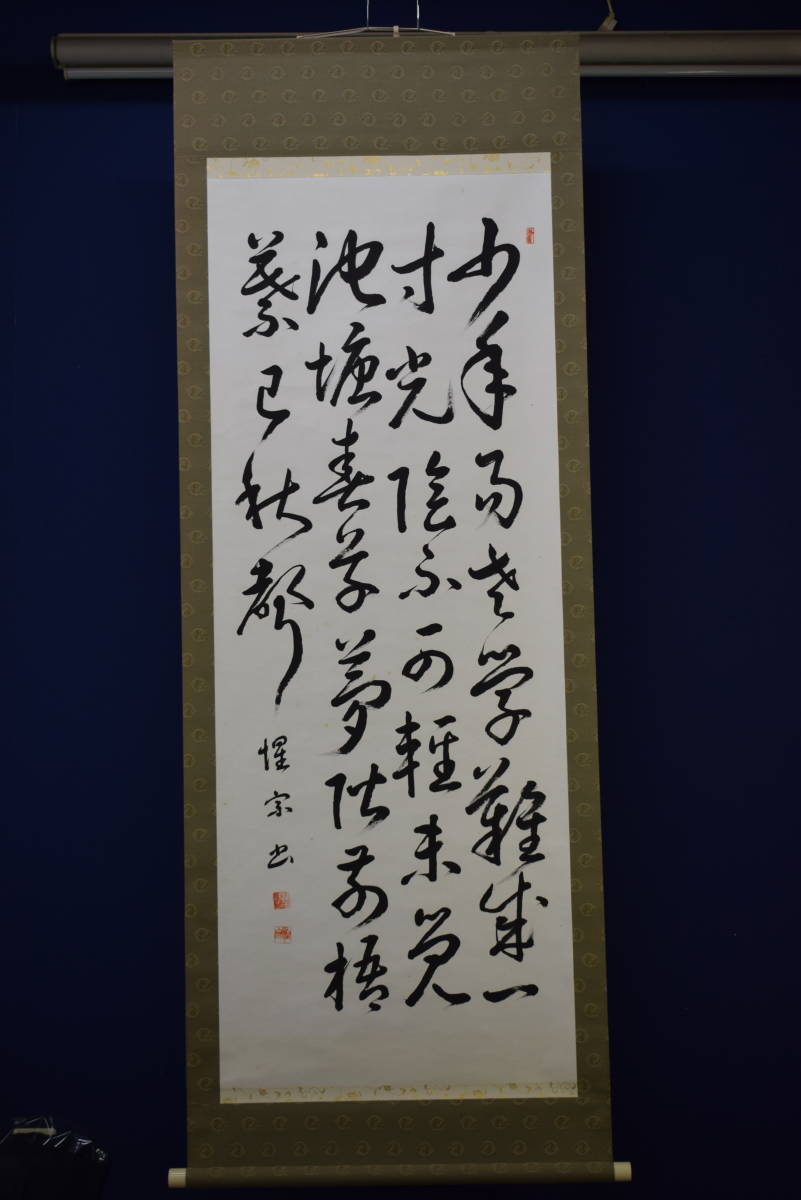 少年易老学難成一
寸光陰不可軽未覚
池塘春草夢階前梧
葉已秋声
惺宗書